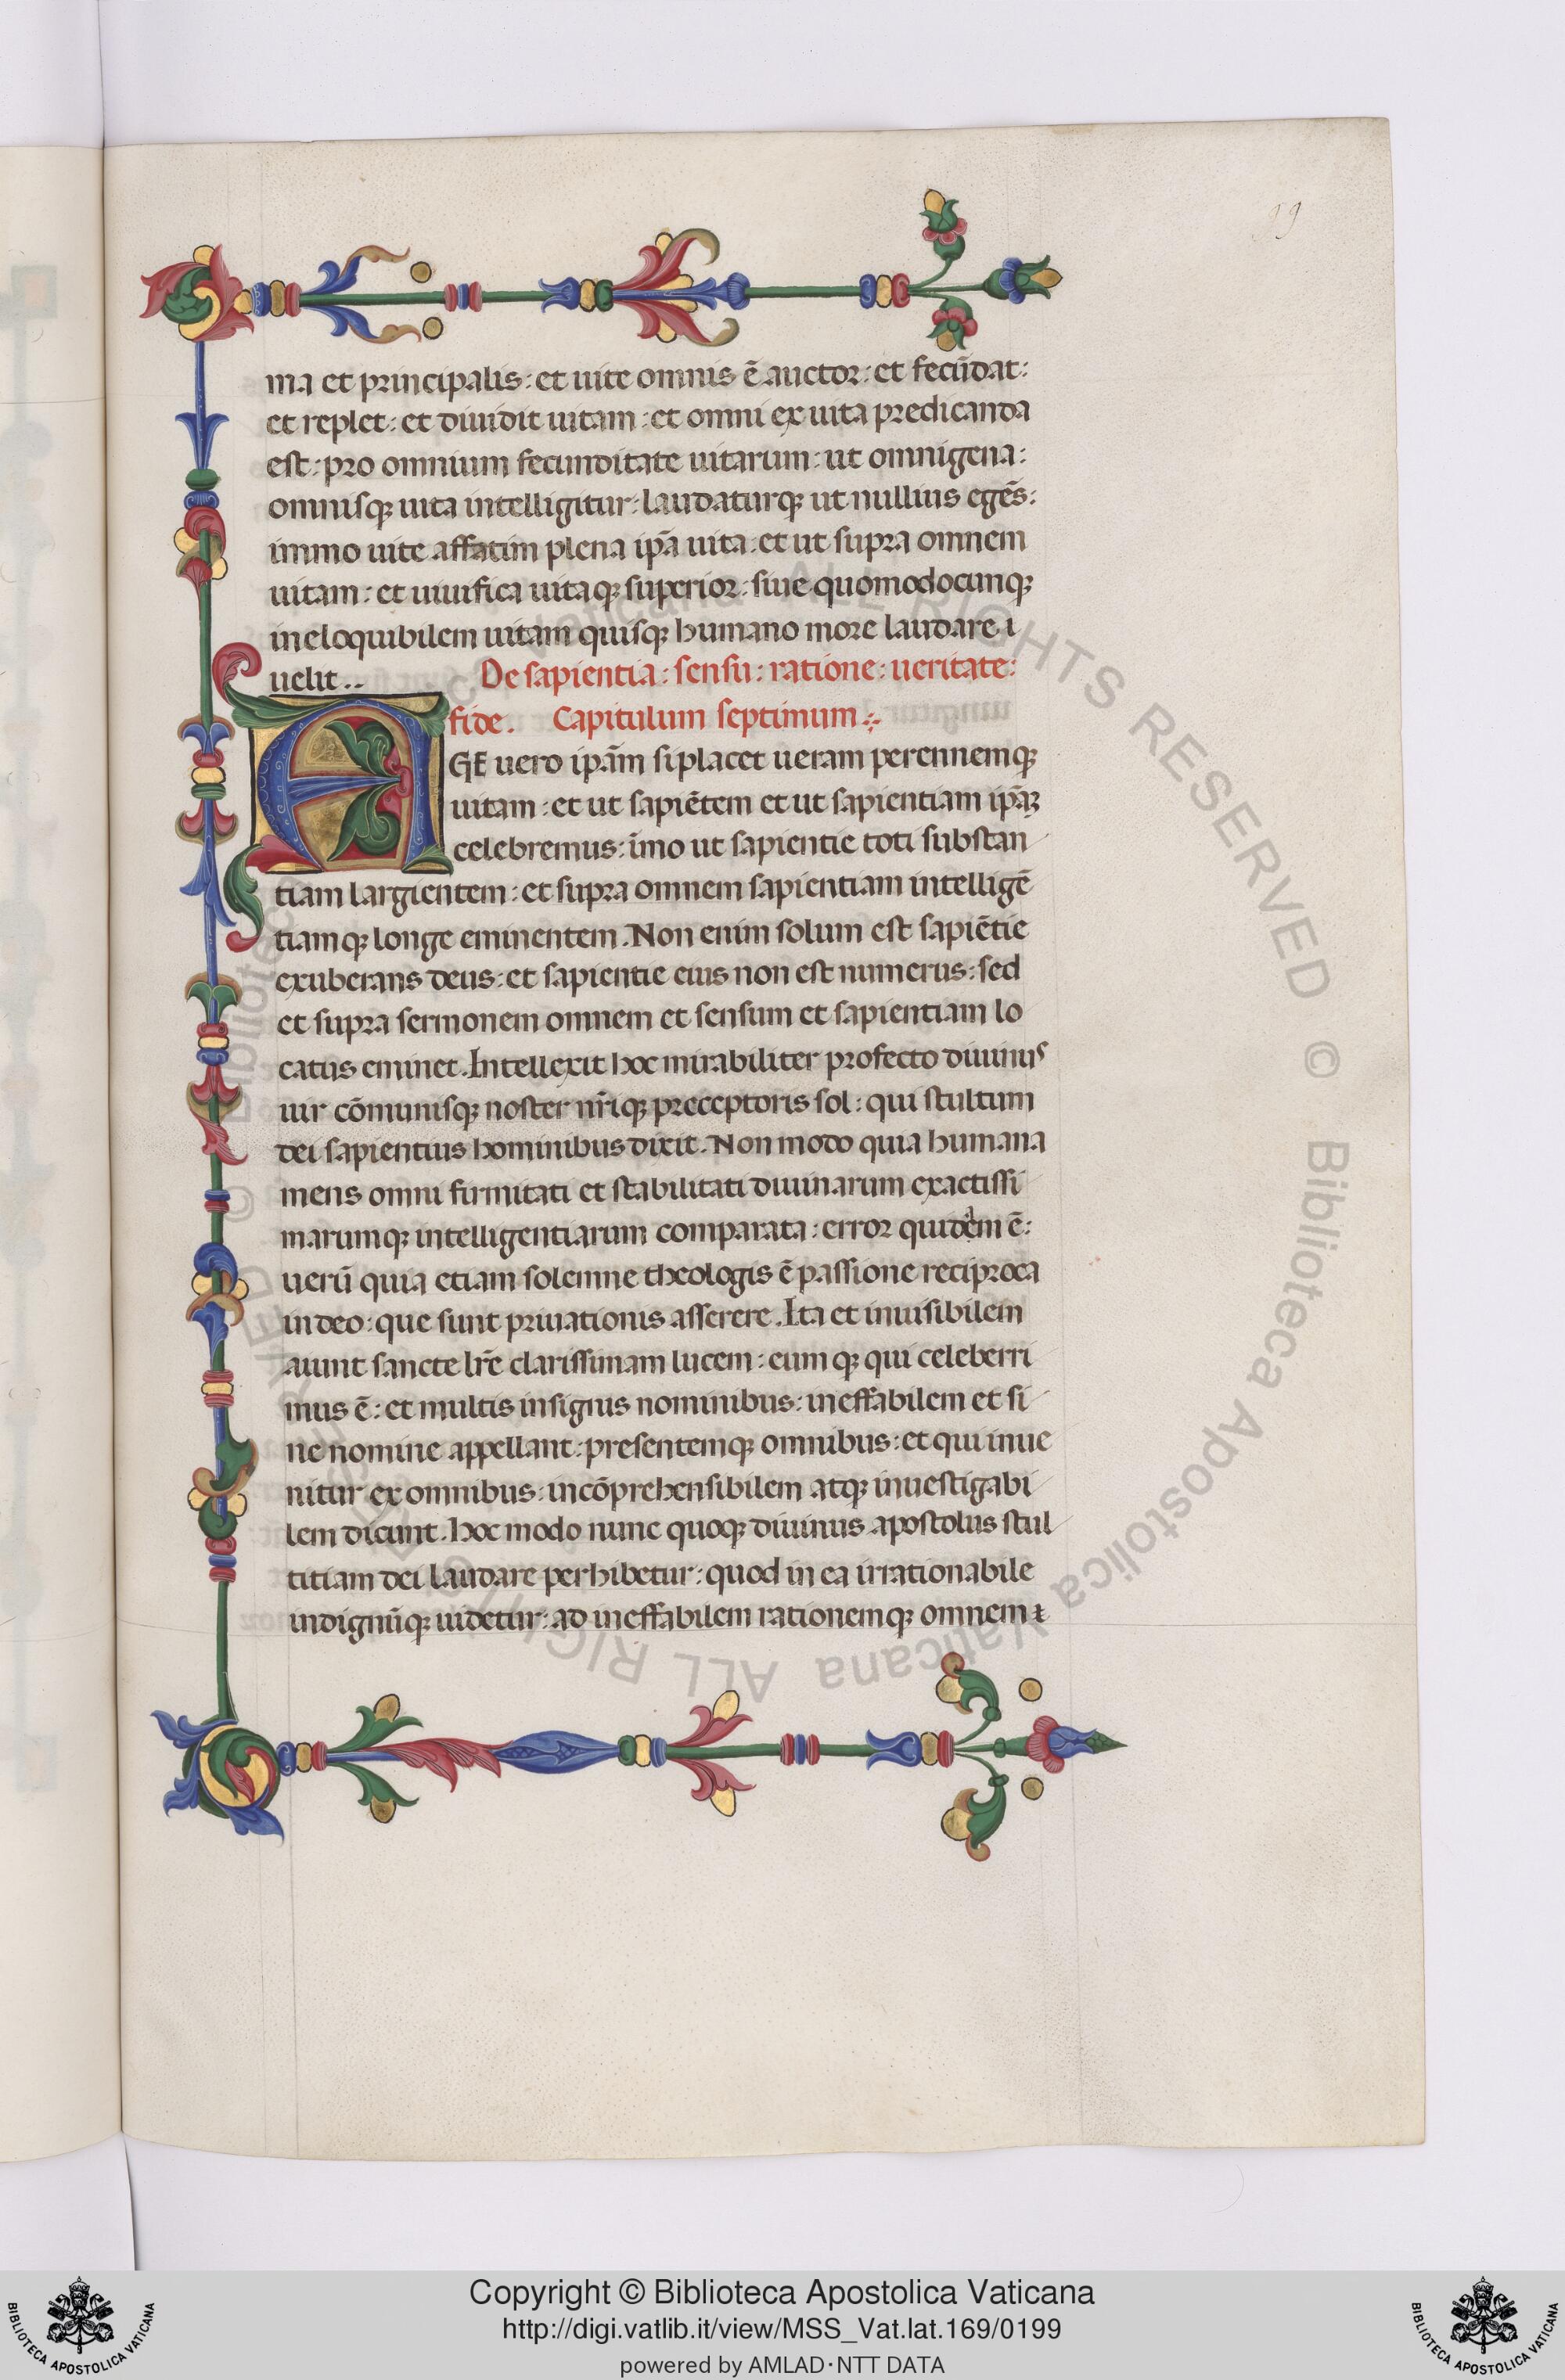 99
ma et principalis: et uite omnis ē auctor: et fecūdat:
et replet: et diuidit uitam: et omni ex uita predicanda
est: pro omnium fecunditate uitarum: ut omnigena:
omnisqꝫ uita intelligitur: laudaturqꝫ ut nullius egēs:
immo uite affatim plena ip̄a uita: et ut supra omnem
uitam: et uiuifica uitaqꝫ superior: siue quomodocunqꝫ
ineloquibilem uitam quisqꝫ humano more laudare i
uelit.. De sapientia: sensu: ratione: ueritate:
fide. Capitulum septimum.:
AGE uero ip̄am si placet ueram perennemqꝫ
uitam: et ut sapiētem et ut sapientiam ip̄aꝫ
celebremus: īmo ut sapientie toti substan
tiam largientem: et supra omnem sapientiam intelligē
tiamqꝫ longe eminentem. Non enim solum est sapiētie
exuberans deus: et sapientie eius non est numerus: sed
et supra sermonem omnem et sensum et sapientiam lo
catus eminet. Intellexit hoc mirabiliter profecto diuinus
uir cōmunisqꝫ noster nr̄iqꝫ preceptoris sol: qui stultum
dei sapientius hominibus dixit. Non modo quia humana
mens omni firmitati et stabilitati diuinarum exactissi
marumqꝫ intelligentiarum comparata: error quidem ē:
uerū quia etiam solemne theologis ē passione reciproca
in deo: que sunt priuationis asserere. Ita et inuisibilem
aiunt sancte lr̄e clarissimam lucem: eumqꝫ qui celeberri
mus ē: et multis insignis nominibus: ineffabilem et si
ne nomine appellant: presentemqꝫ omnibus: et qui inue
nitur ex omnibus: incōprehensibilem atqꝫ inuestigabi
lem dicunt. Hoc modo nunc quoqꝫ diuinus apostolus stul
titiam dei laudare perhibetur: quod in ea irrationabile
indignūqꝫ uidetur: ad ineffabilem rationemqꝫ omnem ⁊
© Biblioteca Apostolica Vaticana ALL RIGHTS RESERVED © Biblioteca Apostolica Vaticana ALL RIGHTS RESERVED
Copyright © Biblioteca Apostolica Vaticana
http://digi.vatlib.it/view/MSS_Vat.lat.169/0199
powered by AMLAD·NTT DATA
BIBLIOTECA APOSTOLICA VATICANA
BIBLIOTECA APOSTOLICA VATICANA